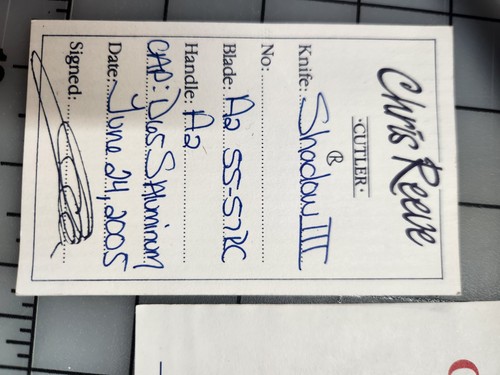 Chris Reeve
·CUTLER·
®
Knife: Shadow III
No:
Blade: A2 55-57RC
Handle: A2
CAP: 7075 Aluminum
Date: June 24, 2005
Signed: